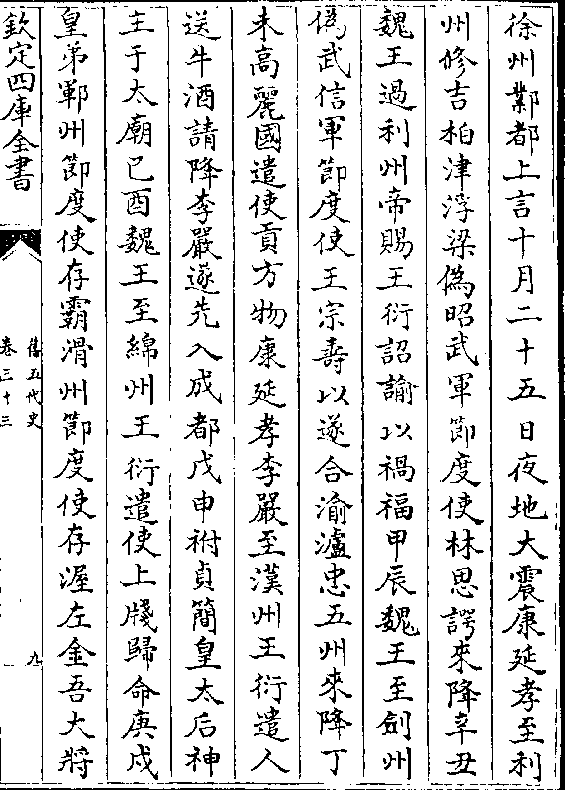 徐州鄴都上言十月二十五日夜地大震康延孝至利
州修吉柏津浮梁偽昭武軍節度使林思諤來降辛丑
魏王過利州帝賜王衍詔諭以禍福甲辰魏王至劍州
偽武信軍節度使王宗壽以遂合渝瀘忠五州來降丁
未高麗國遣使貢方物康延孝李嚴至漢州王衍遣人
送牛酒請降李嚴遂先入成都戊申祔貞簡皇太后神
主于太廟己酉魏王至綿州王衍遣使上牋歸命庚戌
皇弟鄆州節度使存霸滑州節度使存渥左金吾大將
欽定四庫全書
舊五代史
卷三十三
九